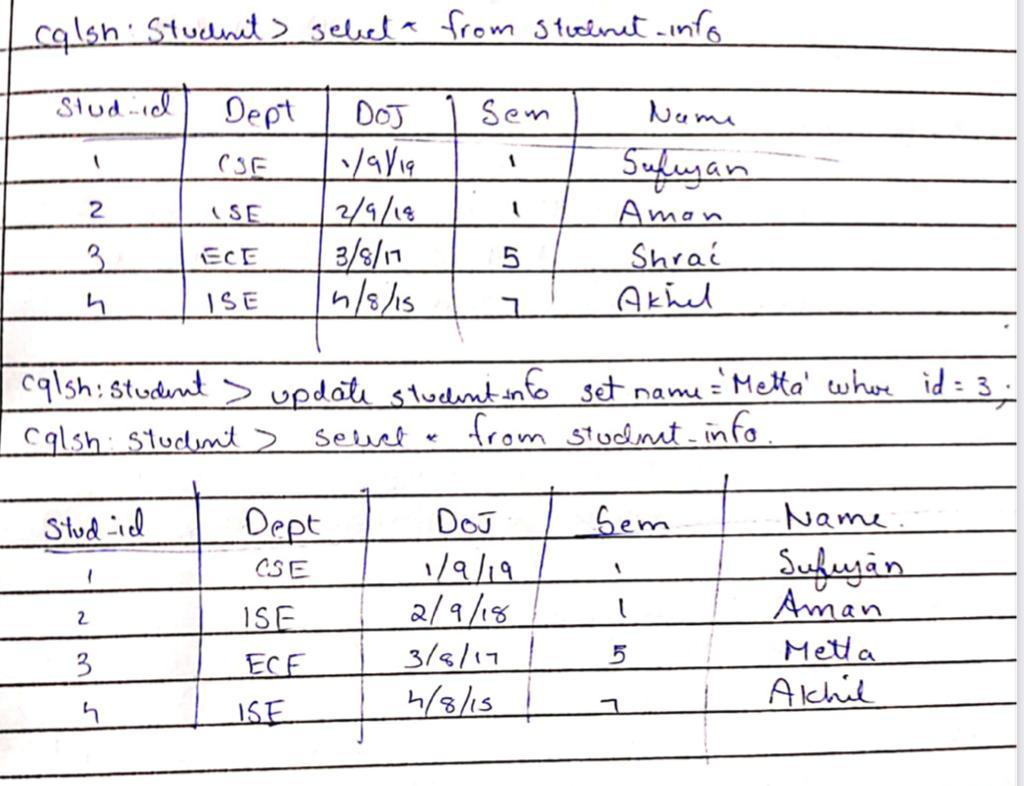 cqlsh: Student> select * from student-info
Stud-id Dept DOJ Sem Name
1 CSE 1/9/19 1 Sufuyan
2 ISE 2/9/18 1 Aman
3 ECE 3/8/17 5 Shrai
4 ISE 4/8/15 7 Akhil
cqlsh: student > update student-info set name = 'Metta' where id = 3;
cqlsh: student > select * from student-info.
Stud-id Dept DOJ Sem Name.
1 CSE 1/9/19 1 Sufuyan
2 ISE 2/9/18 1 Aman
3 ECE 3/8/17 5 Metta
4 ISE 4/8/15 7 Akhil